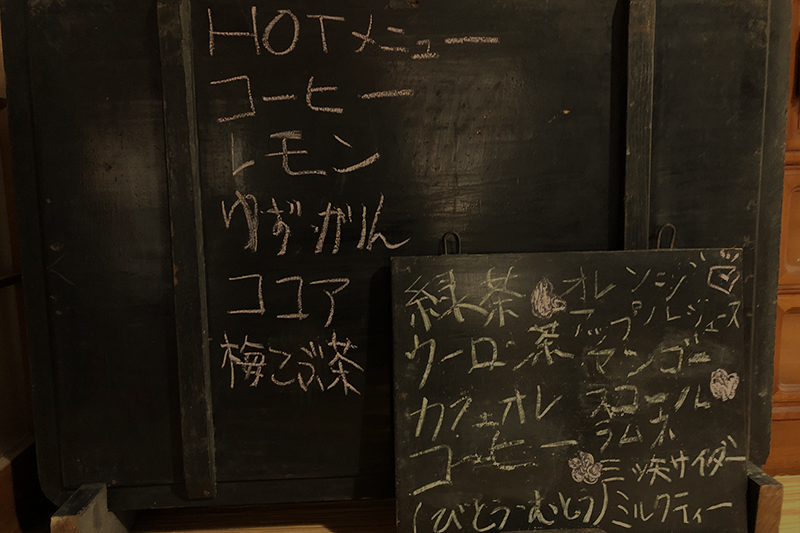 HOTメニュー
コーヒー
レモン
ゆず・かりん
ココア
梅こぶ茶
緑茶
ウーロン茶
カフェオレ
コーヒー
(びとう・むとう)
オレンジ
アップルジュース
マンゴー
スコール
ラムネ
三ツ矢サイダー
ミルクティー